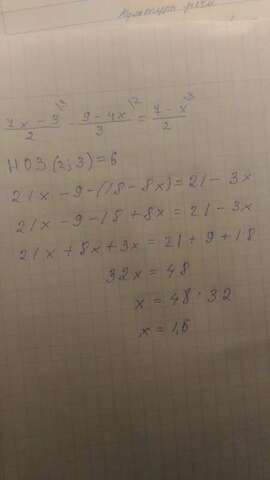 Культура речи
7x - 3^{\3}/2 - 9 - 4x^{\2}/3 = 7 - x^{\3}/2
НОЗ (2; 3) = 6
21x - 9 - (18 - 8x) = 21 - 3x
21x - 9 - 18 + 8x = 21 - 3x
21x + 8x + 3x = 21 + 9 + 18
32x = 48
x = 48 : 32
x = 1,5